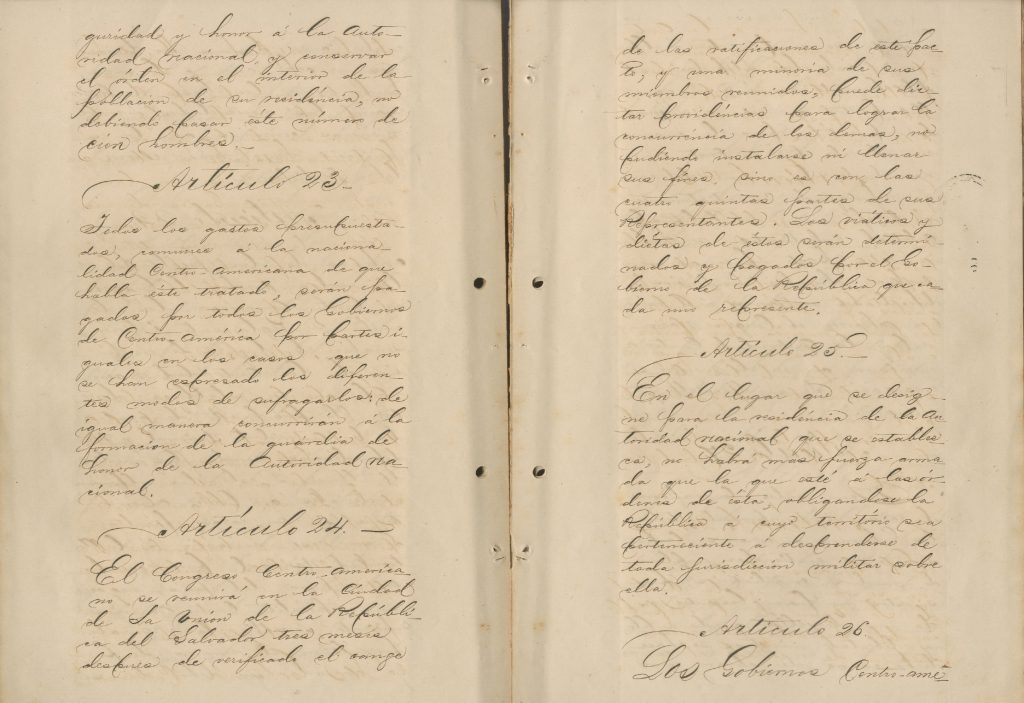 guridad y honor á la Auto-
ridad nacional, y conservar
el órden en el interior de la
poblacion de su residéncia, no
debiendo pasar éste número de
cien hombres.—
Artículo 23.—
Todos los gastos presupuesta-
dos, comunes á la naciona-
lidad Centro-Americana de que
habla éste tratado, serán pa-
gados por todos los Gobiernos
de Centro-América por partes i-
guales en los casos que no
se han espresado los diferen-
tes modos de sufragarlos: de
igual manera concurrirán á la
formacion de la guárdia de
honor de la Autoridad Na-
cional.
Artículo 24.—
El Congreso Centro-America
no se reunirá en la Ciudad
de La Union de la Repúbli-
ca del Salvador tres meses
despues de verificado el cange
de las ratificaciones de este pac-
to; y una minoria de sus
miembros reunidos, puede dic-
tar providéncias para lograr la
concurréncia de los demas, no
pudiendo instalarse ni llenar
sus fines, sino es con las
cuatro quintas partes de sus
Representantes. Los viáticos y
diétas de éstos serán determi-
nados y pagados por el Go-
bierno de la República que ca-
da uno represente.
Artículo 25.—
En el lugar que se desig-
ne para la residéncia de la Au-
toridad nacional que se establez-
ca, no habrá mas fuerza arma-
da que la que esté á las ór-
denes de ésta, obligandose la
República á cuyo território sea
perteneciente á desprenderse de
toda jurisdiccion militar sobre
ella.
Artículo 26.
Los Gobiernos Centro-ame-